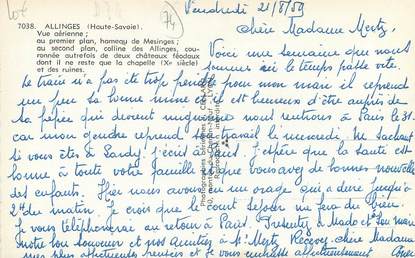 Lot
74
7038. ALLINGES (Haute-Savoie)
Vue aérienne ;
au premier plan, hameau de Mesinges ;
au second plan, colline des Allinges, cou-
ronnée autrefois de deux châteaux féodaux
dont il ne reste que la chapelle (Xe siècle)
et des ruines.
Vendredi 21/8/59
Chère Madame Mertz,
Voici une semaine que nous
sommes ici le temps passe vite.
Le train n'a pas été trop pénible pour mon mari il reprend
un peu sa bonne mine et il est heureux d'être auprès de
sa pépée qui devient mignonne nous rentrons à Paris le 31
car mon gendre reprend son travail le mercredi. Ne sachant
si vous êtes à J'espère que la santé est
bonne à toute votre famille que vous avez de bonnes nouvelles
des enfants. Hier nous avons eu un orage qui a duré jusqu'à
2h du matin. Je crois que le court séjour me fera du bien.
Je vous téléphonerai au retour à Paris. à Mado et son mari
notre bon souvenir et nos amitiés à Mr Mertz Recevez chère Madame
mes plus affectueuses pensées et je vous embrasse affectueusement